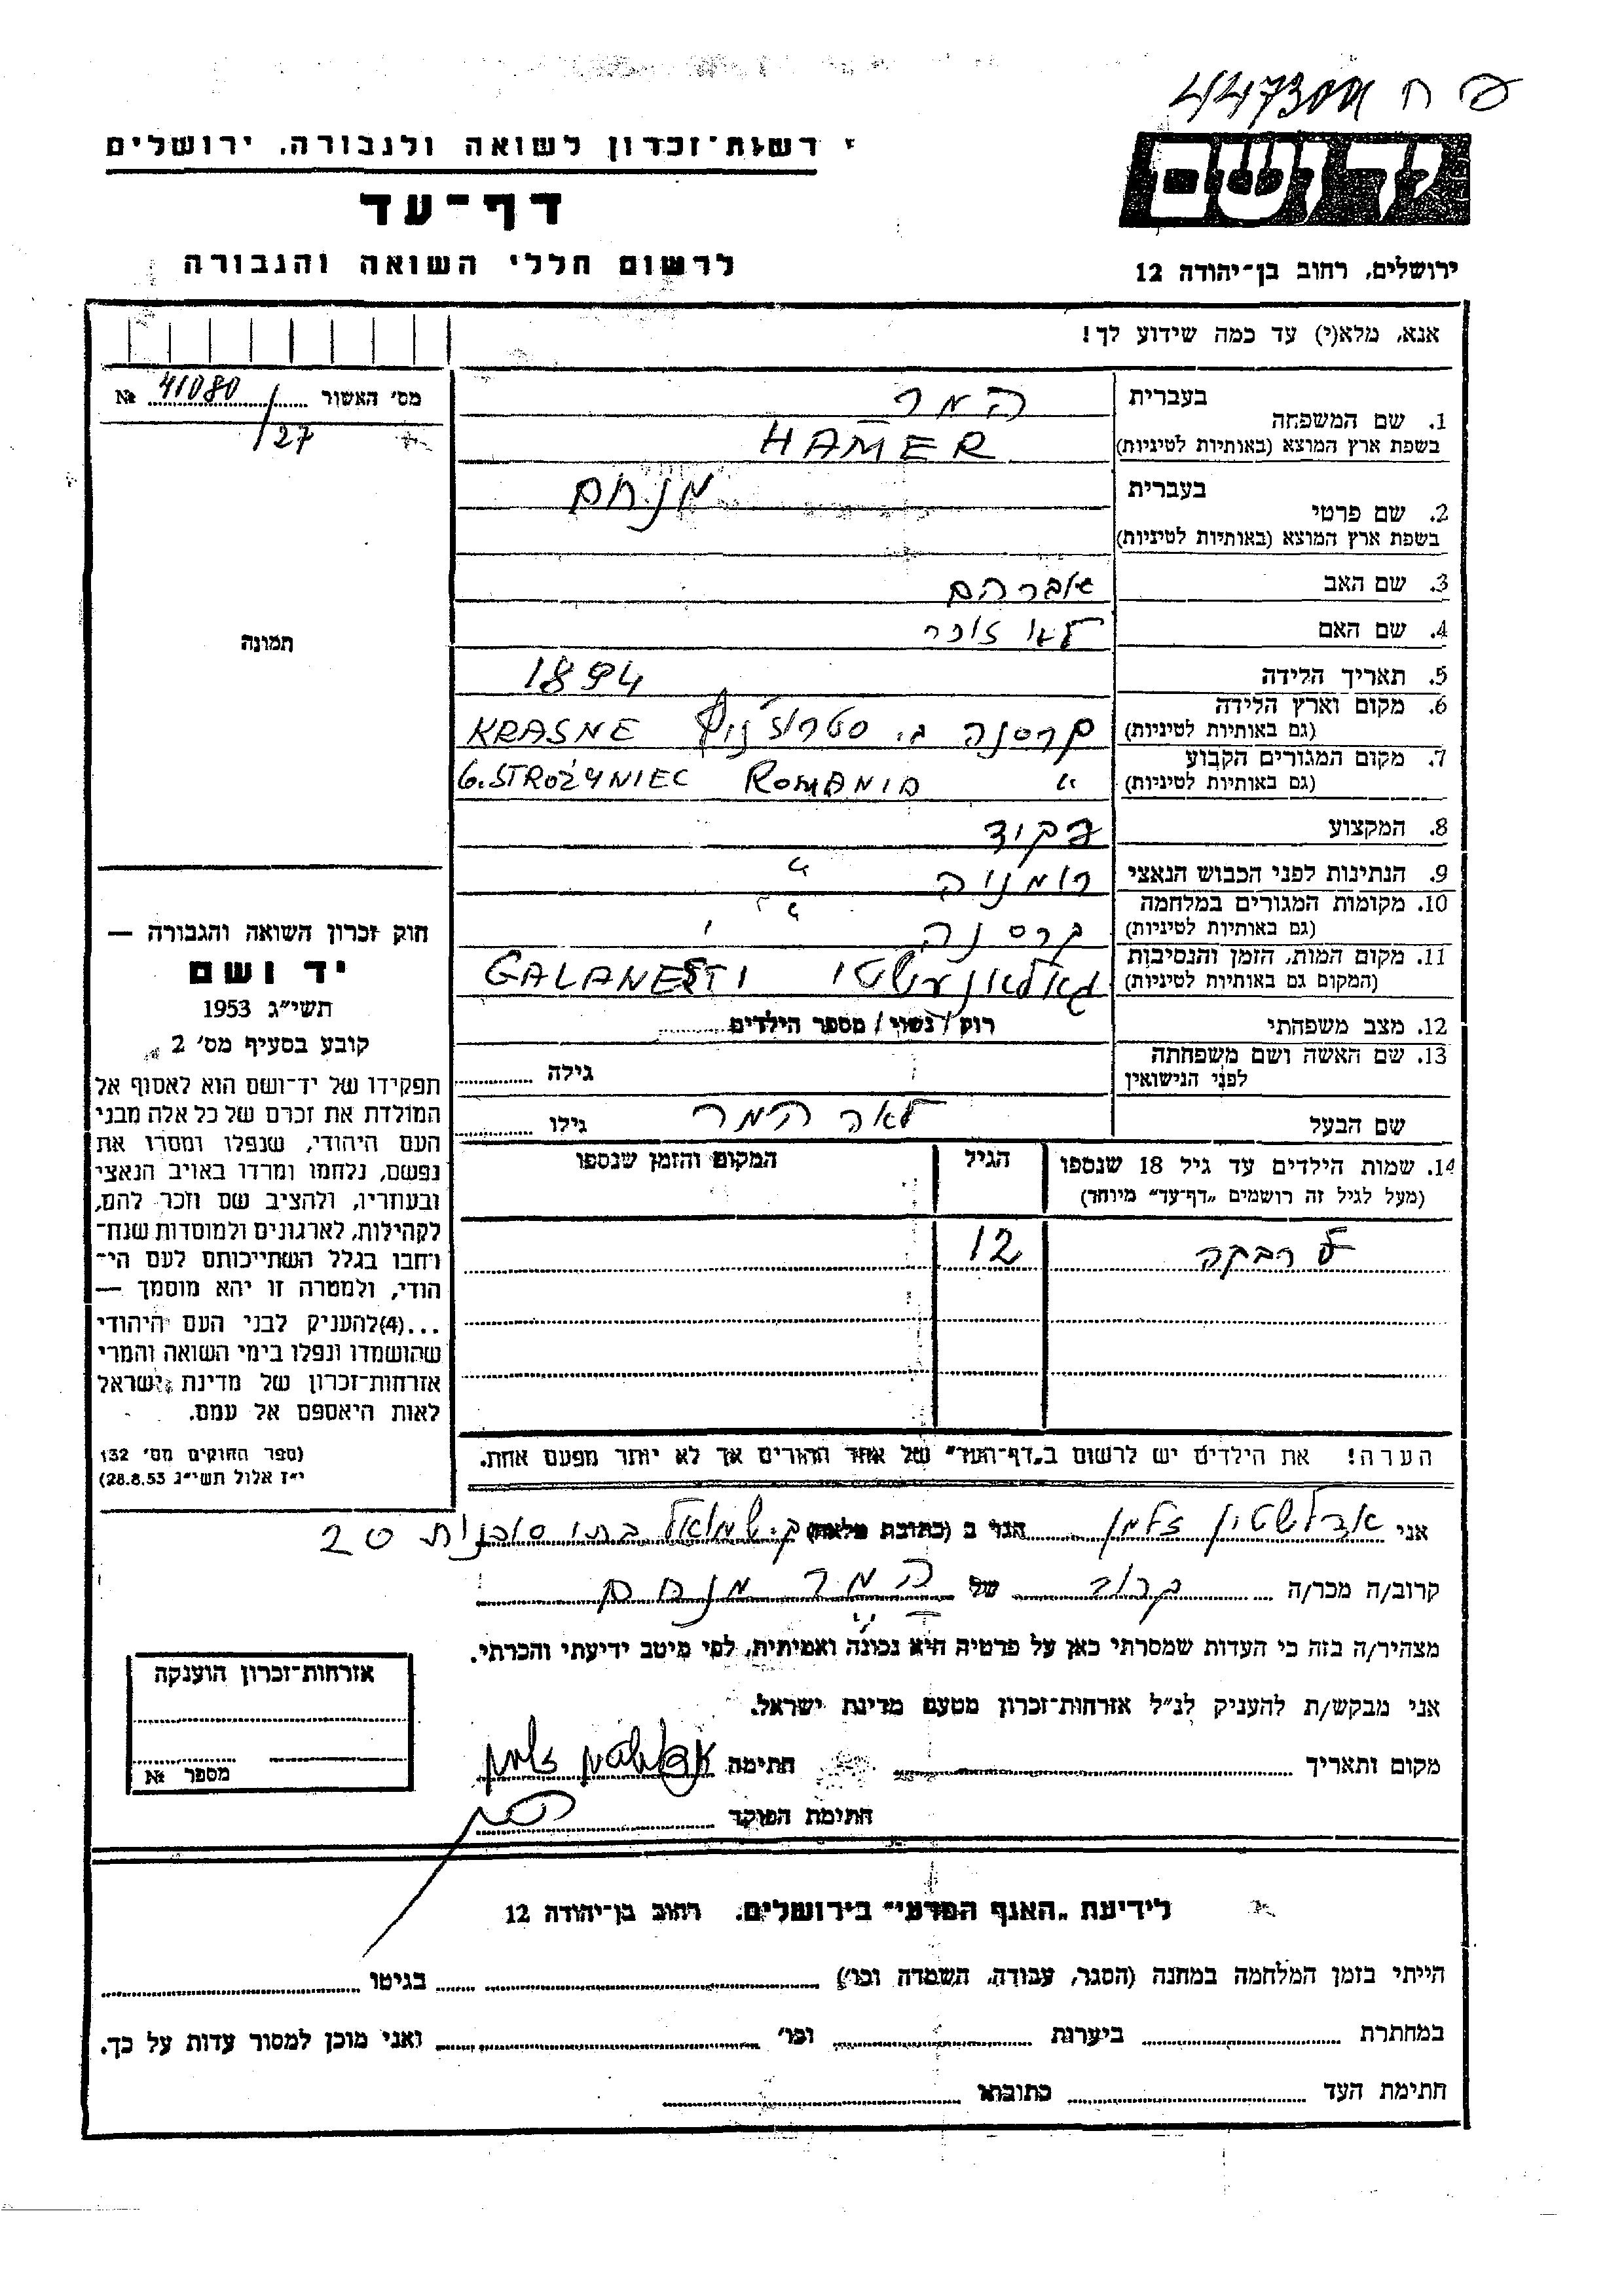 רשות־זכרון לשואה ולגבורה, ירושלים
דף־עד
לרשום חללי השואה והגבורה
יד ושם
ירושלים, רחוב בן־יהודה 12
אנא, מלא(י) עד כמה שידוע לך!
מס׳ האשור 41080 №
/27
תמונה
בעברית המר
1. שם המשפחה
בשפת ארץ המוצא (באותיות לטיניות) HAMER
בעברית מנחם
2. שם פרטי
בשפת ארץ המוצא (באותיות לטיניות)
3. שם האב אברהם
4. שם האם לאו
5. תאריך הלידה 1894
6. מקום וארץ הלידה
(גם באותיות לטיניות) קרסנה ג. KRASNE
7. מקום המגורים הקבוע
(גם באותיות לטיניות) " ROMANIA G. STROŻYNIEC
8. המקצוע פקיד
9. הנתינות לפני הכבוש הנאצי רומניה
10. מקומות המגורים במלחמה
(גם באותיות לטיניות) קרסנה
11. מקום המות, הזמן והנסיבות
(המקום גם באותיות לטיניות) GALANESTI
12. מצב משפחתי רוק/נשוי/ מספר הילדים
13. שם האשה ושם משפחתה
לפני הנישואין גילה
שם הבעל לאה המר גילו
14. שמות הילדים עד גיל 18 שנספו
(מעל לגיל זה רושמים „דף־עד״ מיוחד)
הגיל
המקום והזמן שנספו
רבקה 12
הערה! את הילדים יש לרשום ב„דף־העד״ של אחד ההורים אך לא יותר מפעם אחת.
חוק זכרון השואה והגבורה —
יד ושם
תשי״ג 1953
קובע בסעיף מס׳ 2
תפקידו של יד־ושם הוא לאסוף אל
המולדת את זכרם של כל אלה מבני
העם היהודי, שנפלו ומסרו את
נפשם, נלחמו ומרדו באויב הנאצי
ובעוזריו, ולהציב שם וזכר להם,
לקהילות, לארגונים ולמוסדות שנח־
רבו בגלל השתייכותם לעם הי־
הודי, ולמטרה זו יהא מוסמך —
...(4)להעניק לבני העם היהודי
שהושמדו ונפלו בימי השואה והמרי
אזרחות־זכרון של מדינת ישראל
לאות היאספם אל עמם.
(ספר החוקים מס׳ 132
י״ז אלול תשי״ג 28.8.53)
אני אדלשטין זלמן הגר ב (כתובת מלאה) ק. שמואל 20
קרוב/ה מכר/ה קרוב של המר מנחם
מצהיר/ה בזה כי העדות שמסרתי כאן על פרטיה היא נכונה ואמיתית, לפי מיטב ידיעתי והכרתי.
אני מבקש/ת להעניק לנ״ל אזרחות־זכרון מטעם מדינת ישראל.
מקום ותאריך חתימה אדלשטין זלמן
חתימת הפוקד
אזרחות־זכרון הוענקה
מספר №
לידיעת „האגף המדעי״ בירושלים, רחוב בן־יהודה 12
הייתי בזמן המלחמה במחנה (הסגר, עבודה, השמדה וכו׳) בגיטו
במחתרת ביערות וכו׳ ואני מוכן למסור עדות על כך.
חתימת העד כתובתו